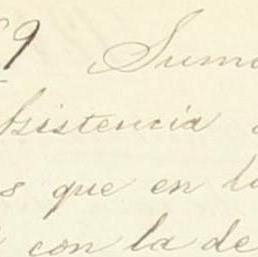 9 Suma
bsistencia
s que en la
con la de